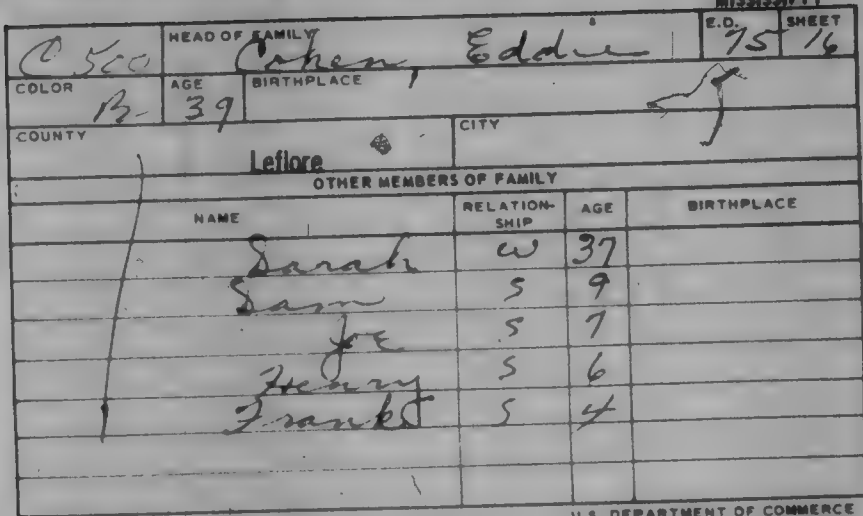 MISSISSIPPI
HEAD OF FAMILY E.D. SHEET
C 500 Cohen, Eddie 75 16
COLOR AGE BIRTHPLACE
B- 39
COUNTY CITY
Leflore
OTHER MEMBERS OF FAMILY
NAME RELATION-SHIP AGE BIRTHPLACE
Sarah W 37
Sam S 9
Joe S 7
Henry S 6
Frank S 4
U.S. DEPARTMENT OF COMMERCE